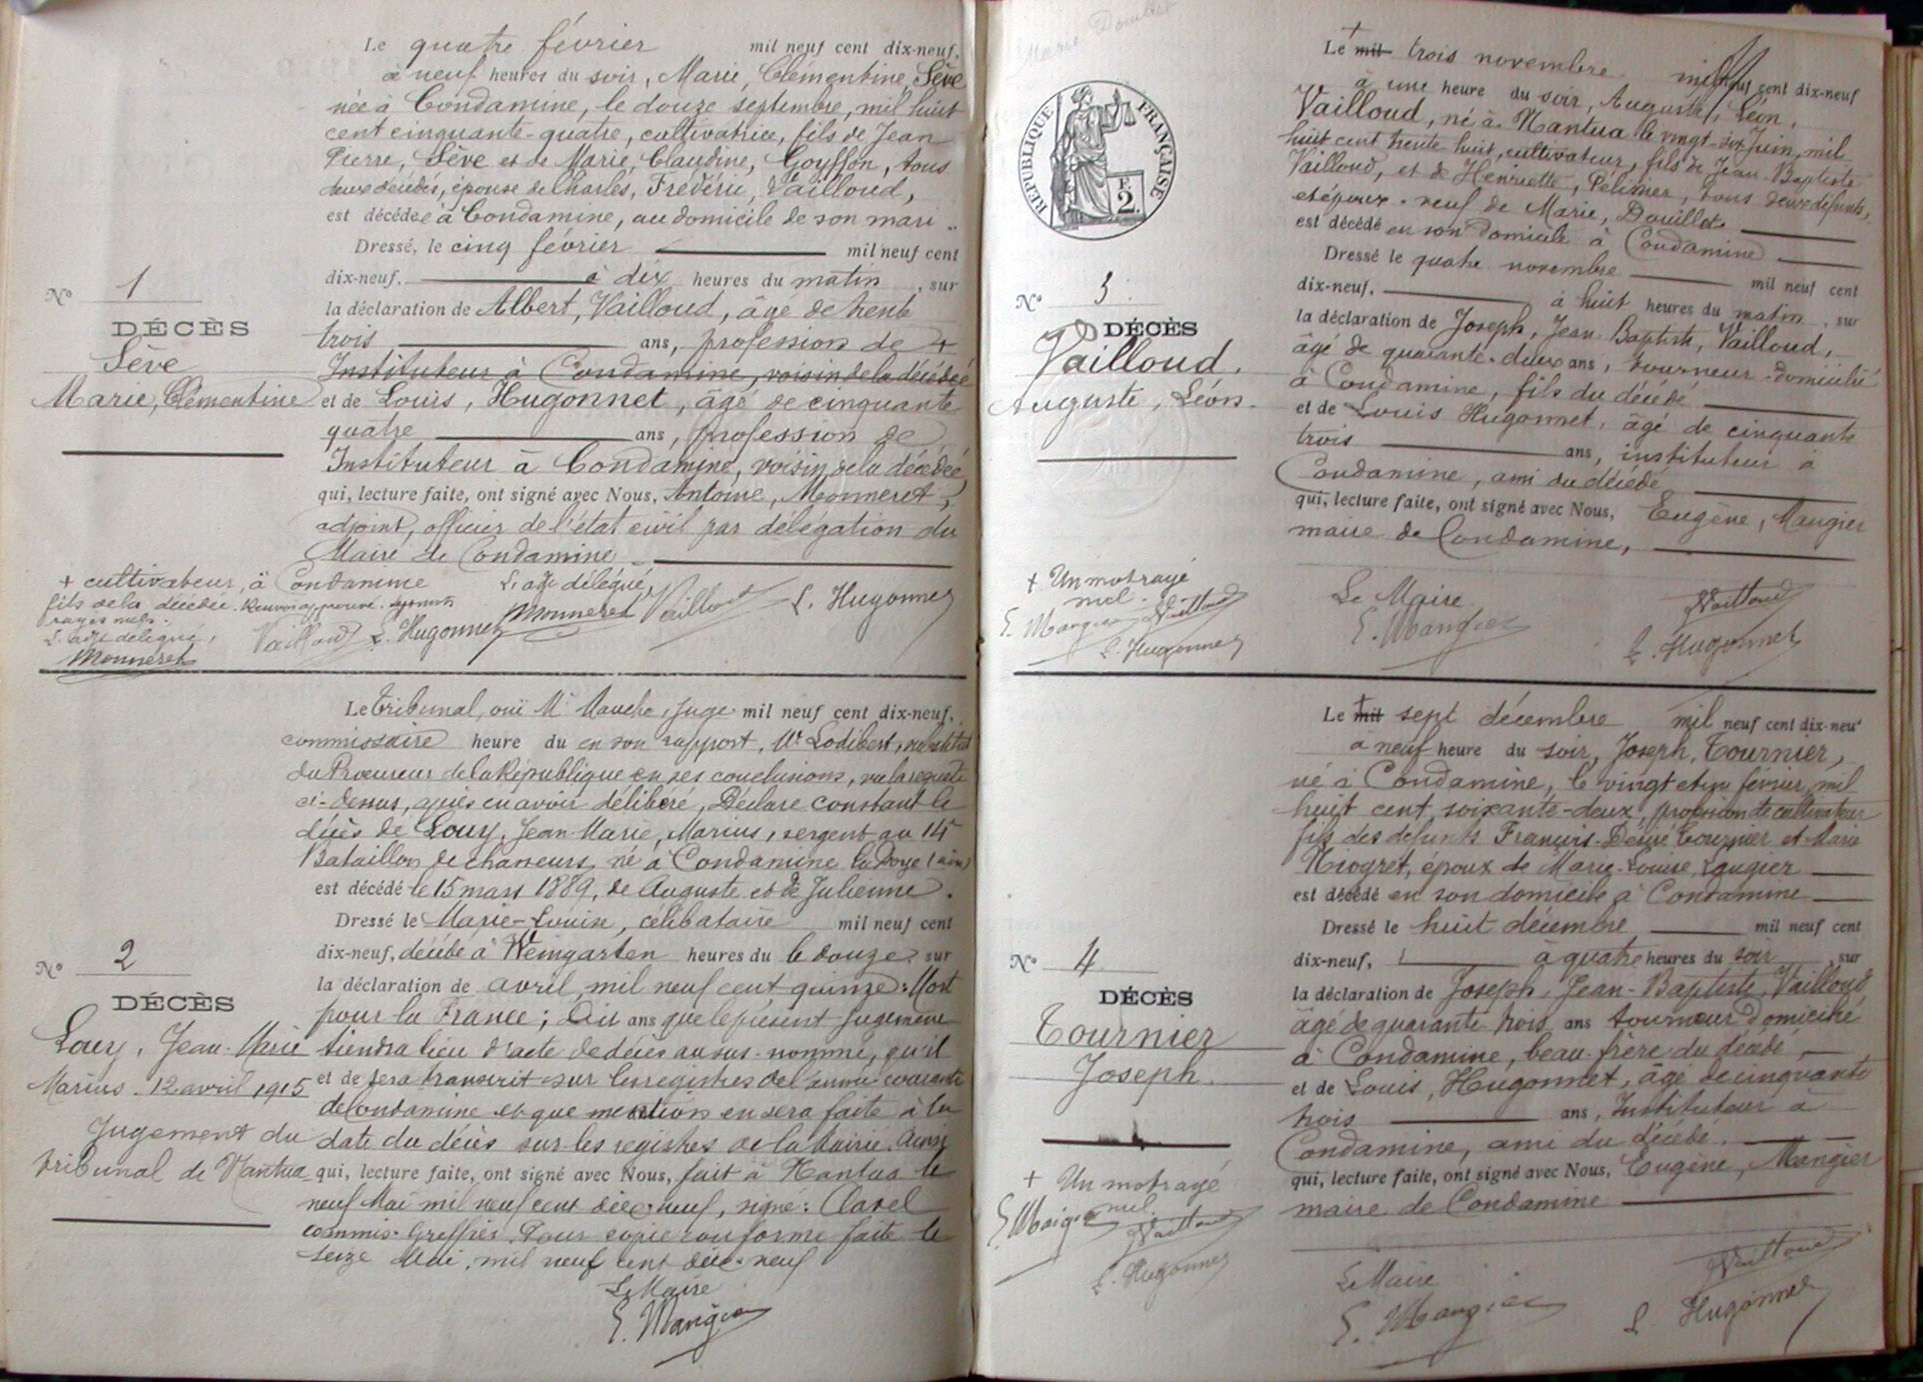 Le quatre février mil neuf cent dix-neuf,
à neuf heures du soir, Marie, Clémentine, Sève
née à Condamine, le douze septembre, mil huit
cent cinquante-quatre, cultivatrice, fils de Jean
Pierre, Sève et de Marie, Claudine, Goyffon, tous
deux décédés, épouse de Charles, Frédéric, Vailloud,
est décédée à Condamine, au domicile de son mari.
Dressé, le cinq février mil neuf cent
dix-neuf. à dix heures du matin, sur
la déclaration de Albert, Vailloud, âgé de trente
trois ans, profession de +
Instituteur à Condamine, voisin de la décédée
et de Louis, Hugonnet, âgé de cinquante
quatre ans, profession de
Instituteur à Condamine, voisin de la décédée
qui, lecture faite, ont signé avec Nous, Antoine, Monneret,
adjoint, officier de l'état civil par délégation du
Maire de Condamine
No 1
DÉCÈS
Sève
Marie, Clémentine
+ cultivateur, à Condamine
fils de la décédée. Renvoi approuvé.
rayés nuls.
L'adjt délégué,
Monneret
Vailloud L. Hugonnet
L'adjt délégué,
Monneret Vailloud L. Hugonnet
Le Tribunal, ouï Mr Mauche, Juge mil neuf cent dix-neuf,
commissaire heure du en son rapport, Mr Lodibert, substitut
du Procureur de la République en ses conclusions, vu la requête
ci-dessus, après en avoir délibéré, Déclare constant le
décès de Louy, Jean-Marie, Marius, sergent au 14e
Bataillon de chasseurs, né à Condamine la Doye (ain)
est décédé le 15 mars 1889, de Auguste et de Julienne
Dressé le Marie-Louise, célibataire mil neuf cent
dix-neuf, décédé à Weingarten heures du le douze sur
la déclaration de avril, mil neuf cent quinze. Mort
pour la France; Dit ans que le présent jugement
tiendra lieu d'acte de décès au sus-nommé, qu'il
et de sera transcrit sur les registres de l'année courante
de Condamine et que mention en sera faite à la
date du décès sur les registres de la Mairie. Ainsi
qui, lecture faite, ont signé avec Nous, fait à Nantua le
neuf Mai mil neuf cent dix-neuf, signé: Clavel
commis-Greffier. Pour copie conforme faite le
seize Mai, mil neuf cent dix-neuf
Le Maire
E. Mangier
No 2
DÉCÈS
Louy, Jean-Marie
Marius. 12 avril 1915
Jugement du
tribunal de Nantua
RÉPUBLIQUE FRANÇAISE
2F
+
Le mil trois novembre mil neuf cent dix-neuf
à une heure du soir, Auguste, Léon,
Vailloud, né à Nantua le vingt-six Juin, mil
huit cent trente huit, cultivateur, fils de Jean-Baptiste
Vailloud, et de Henriette, Pélissier, tous deux défunts,
et époux-veuf de Marie, Douillet
est décédé en son domicile à Condamine
Dressé le quatre novembre mil neuf cent
dix-neuf, à huit heures du matin, sur
la déclaration de Joseph, Jean-Baptiste, Vailloud,
âgé de quarante-deux ans, tourneur-domicilié
à Condamine, fils du décédé
et de Louis Hugonnet, âgé de cinquante
trois ans, instituteur à
Condamine, ami du décédé
qui, lecture faite, ont signé avec Nous, Eugène, Mangier
maire de Condamine,
No 3
DÉCÈS
Vailloud.
Auguste, Léon.
+ Un mot rayé
nul.
E. Mangier Vailloud
L. Hugonnet
Le Maire
E. Mangier
Vailloud
L. Hugonnet
+
Le mil sept décembre mil neuf cent dix-neuf
à neuf heure du soir, Joseph, Tournier,
né à Condamine, le vingt et un février, mil
huit cent soixante-deux, profession de cultivateur
fils des défunts François-Désiré Tournier et Marie
Niogret, époux de Marie-Louise, Laugier
est décédé en son domicile à Condamine
Dressé le huit décembre mil neuf cent
dix-neuf, à quatre heures du soir, sur
la déclaration de Joseph, Jean-Baptiste, Vailloud
âgé de quarante trois ans tourneur domicilié
à Condamine, beau-frère du décédé,
et de Louis, Hugonnet, âgé de cinquante
trois ans, Instituteur à
Condamine, ami du décédé.
qui, lecture faite, ont signé avec Nous, Eugène, Mangier
maire de Condamine
No 4
DÉCÈS
Tournier
Joseph.
+ Un mot rayé
nul.
E. Mangier Vailloud
L. Hugonnet
Le Maire
E. Mangier
Vailloud
L. Hugonnet